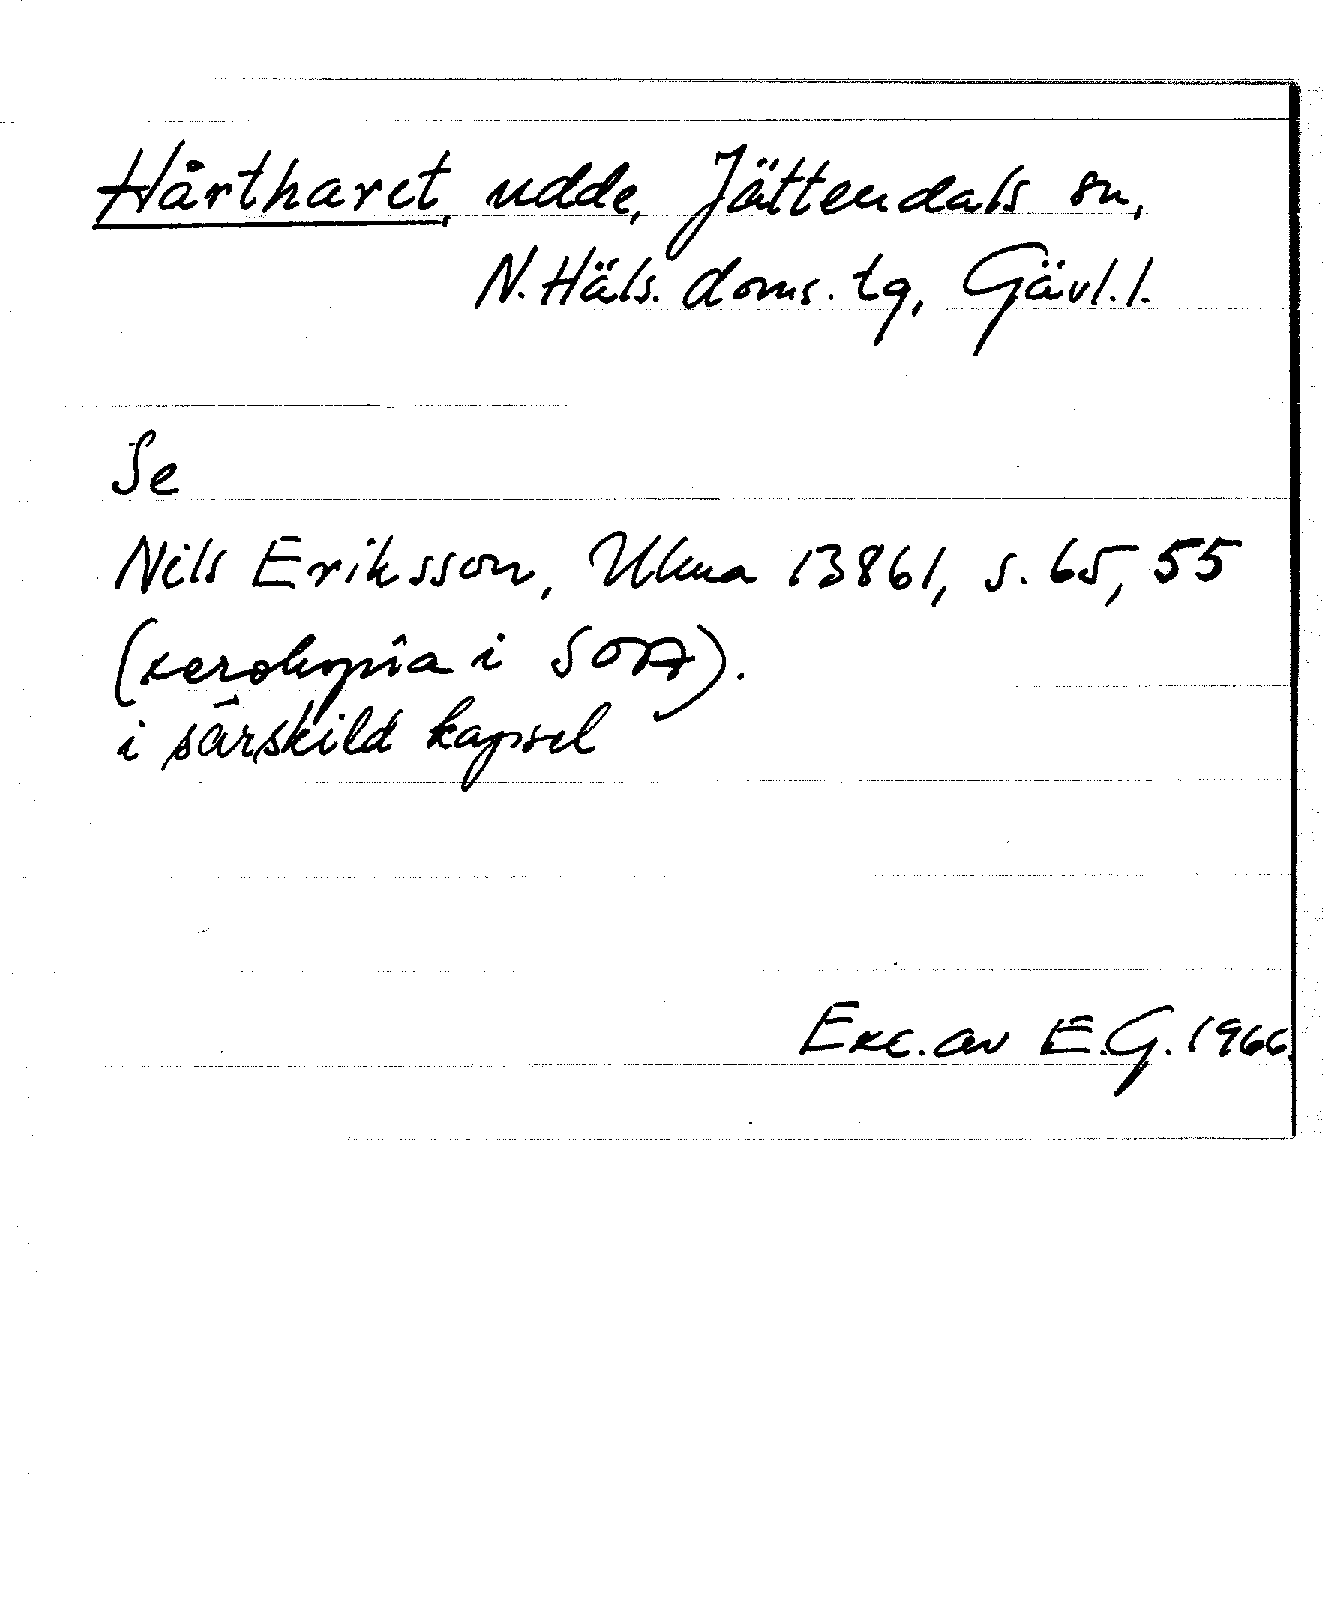 Hårtharet, udde, Jättendals sn,
N. Häls. doms. tg, Gävl. l.
Se
Nils Eriksson, Ulma 13861, s. 65, 55
(xerokopia i SOA).
i särskild kapsel
Exc. av E.G. 1966.